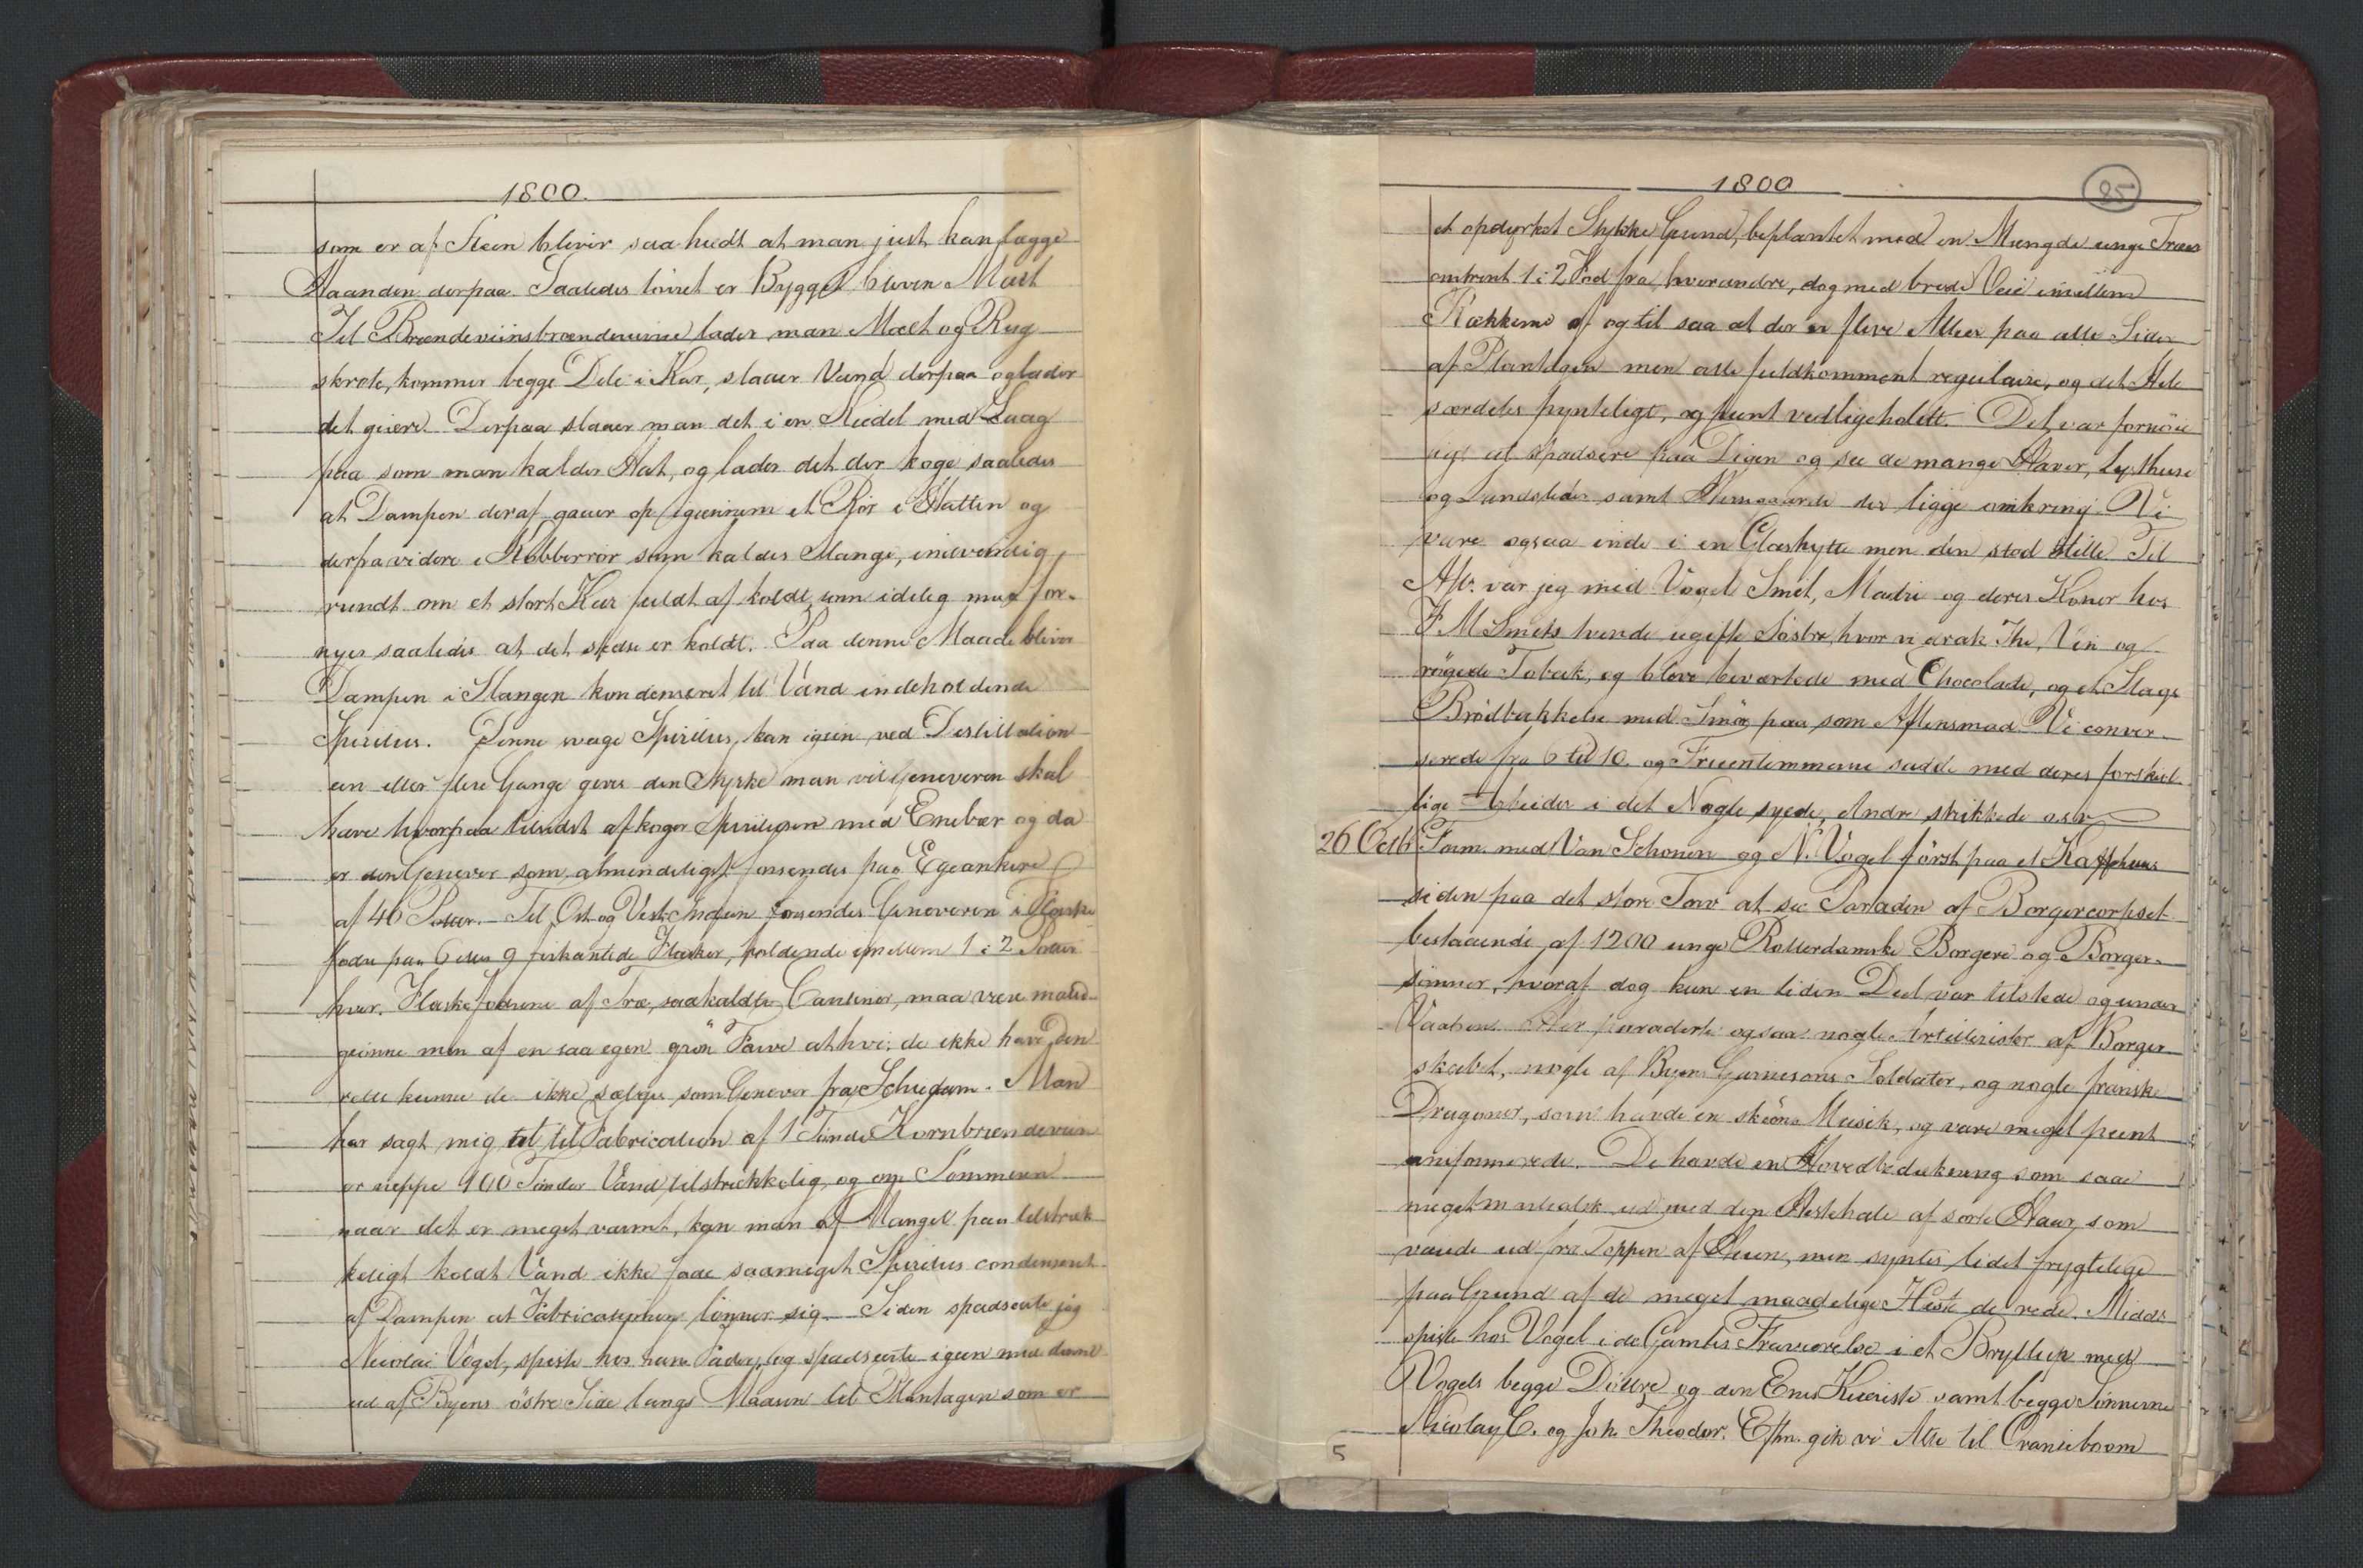 1800.
som er af Steen bliver saa heedt at man just kan lægge
Haanden derpaa. Saaledes tørret er Bygget bleven Malt
Til Brændeviinsbrænderierne lader man Malt og Rug
skrote, kommer begge Dele i Kar, slaaer Vand derpaa og lader
det giære. Derpaa slaaer man det i en Kiedel med Laag
paa som man kalder Hat, og lader det der koge saaledes
at Dampen deraf gaaer op igiennem et Rör i Hatten og
derfra videre i Kobberrör som kaldes Slange, indvendig
rundt om et stort Kar fuldt af koldt som idelig maa for-
nyes saaledes at det stedse er koldt. Paa denne Maade bliver
Dampen i Slangen kondenseret til Vand indeholdende
Spiritus. Denne svage Spiritus kan igien ved Destillation
een eller flere Gange gives den Styrke man vil Geneveren skal
have hvorpaa tilsidst afkoger Spiritusen med Enebær og da
er den Genever som almindeligst forsendes paa Egeankere
af 40 Potter. Til Ost og Vest-Indien forsendes Geneveren i Flaske
fodre paa 6 eller 9 firkantede Flasker, holdende imellem 1 à 2 Potter
hver. Flaskefodrene af Træ, saakaldte Cantiner, maa være
men af en saa egen grön Farve at hvis de ikke have den
rette kunne de ikke sælges som Genever fra Schiedam. Man
har sagt mig at til Fabrication af 1 Tönde Kornbrændeviin
er neppe 100 Tönder Vand tilstrækkelig, og om Sommeren
naar det er meget varmt, kan man af Mangel paa tilstræk
keligt koldt Vand ikke faae saameget Spiritus condenseret
af Dampen at Fabricationen lönner sig. Siden spadserte jeg
Nicolai Vogel, spiste hos hans Fader, og spadserte igien med dem
ud af Byens östre Side langs Maasen til Plantagen som er
1800
85
et opdyrket Stykke Grund, beplantet med en Mængde unge Træer
omtrent 1 à 2 Fod fra hverandre, dog med brede Veie imellem
Rækkerne af og til saa at der er flere Alleer paa alle Sider
af Plantagen men alle fuldkomment regulaire, og det Hele
særdeles pynteligt, og peent vedligeholdt. Det var fornöie
ligt at spadsere paa Digen og see de mange Haver, Lysthuse
og Landsteder samt der ligge omkring. Vi
vare ogsaa inde i en Glashytte men den stod stille. Til
Aft. var jeg med Vogel Smit, Madri og deres Koner hos
F M Smits tvende ugifte Söstre, hvor vi drak The, Vin og
rögede Tobak, og bleve beværtede med Chocolade, og et Slags
Brödbakkelse med Smör paa som Aftensmad. Vi conver-
serede fra 6 til 10. og Fruentimmerne sadde med deres forskiel
lige Arbeider i det Nogle syede, Andre strikkede osv
26 Octb Form. med Van Schonen og N. Vogel först paa et Kaffehuus
siden paa det store Torv at see Paraden af Borgercorpset
bestaaende af 1200 unge Rotterdamske Borgere og Borger-
sönner, hvoraf dog kun en liden Deel var tilstede og under
Vaaben. Der paraderte ogsaa nogle Artillerister af Borger
skabet, nogle af Byens Garnisons Soldater, og nogle franske
Dragoner, som havde en skiön Musik, og vare meget peent
uniformerede. De havde en Hovedbedækning som saae
meget martialsk ud med den Hestehale af sorte Haar, som
vaiede ud fra Toppen af Huen, men syntes lidet frygtelige
paa Grund af de meget maadelige Heste de rede. Midds
spiste hos Vogel i de Gamles Fraværelse i et Bryllup med
Vogels begge Döttre og den Enes Kiæreste samt begge Sönnerne
Nicolay C. og Joh. Theodor. Eftm. gik vi Alle til Oranieboom
5